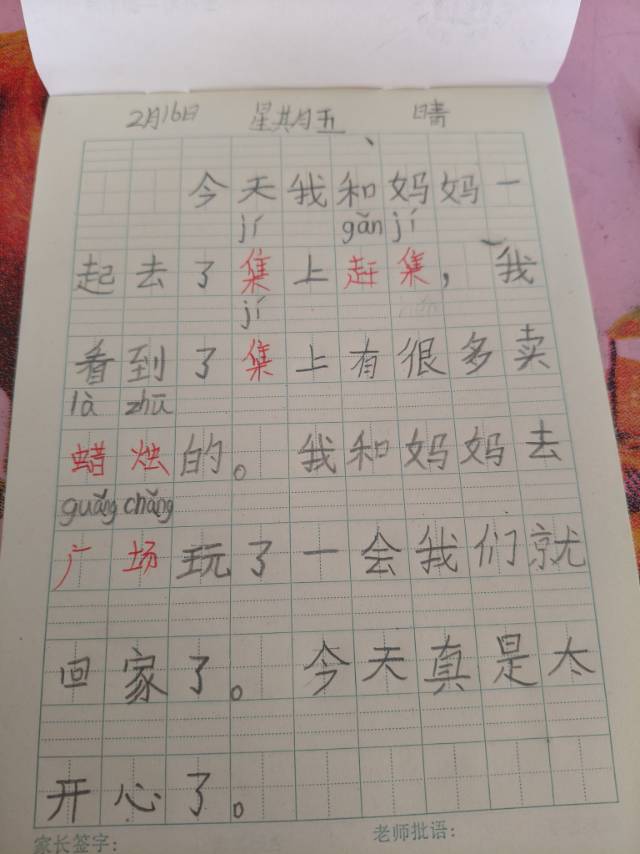 2月16日 星期五、 晴
今天我和妈妈一
jí gǎn jí
起去了集上赶集，我
jí
看到了集上有很多卖
là zhū
蜡烛的。我和妈妈去
guǎng chǎng
广场玩了一会我们就
回家了。今天真是太
开心了。
家长签字： 老师批语：